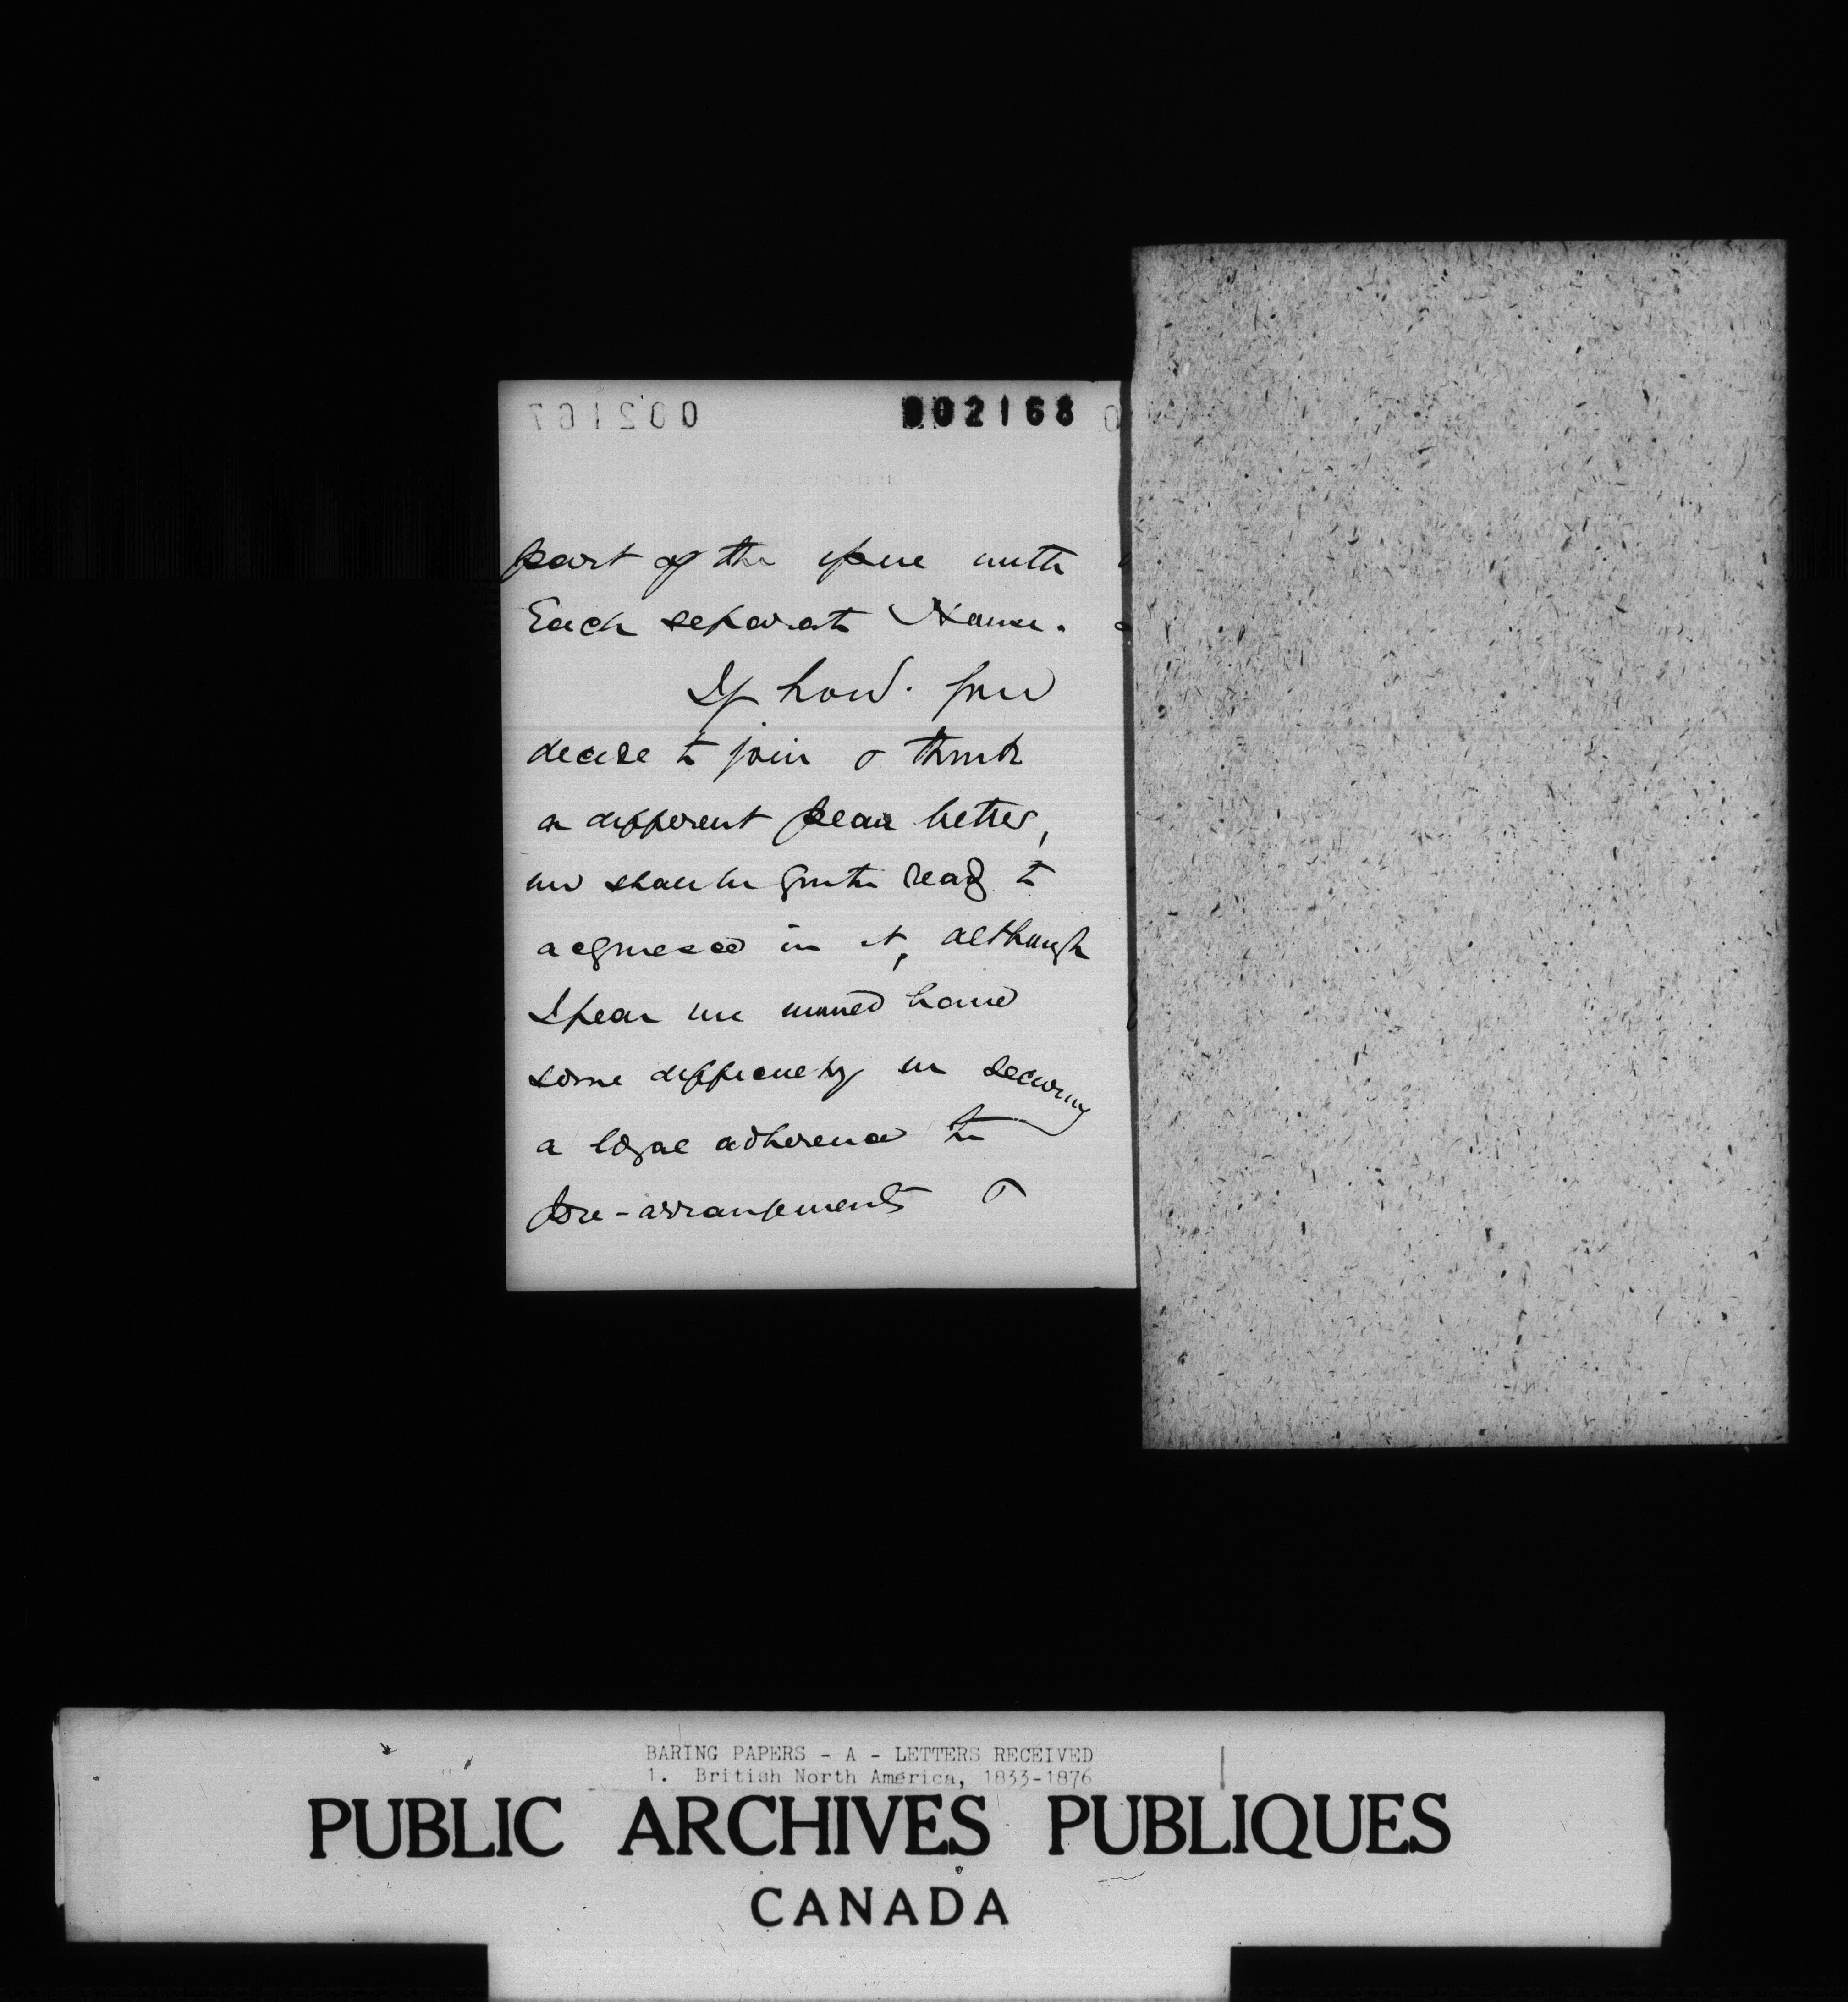 002167 002168
part of the issue with
Each separate Name.
If how.r you
decide to join & think
a different plan better,
we shall be quite ready to
acquiesce in it, although
I fear we would have
some difficulty in securing
a loyal adherence to
pre-arrangements &
BARING PAPERS - A - LETTERS RECEIVED
1. British North America, 1833-1876
PUBLIC ARCHIVES PUBLIQUES
CANADA